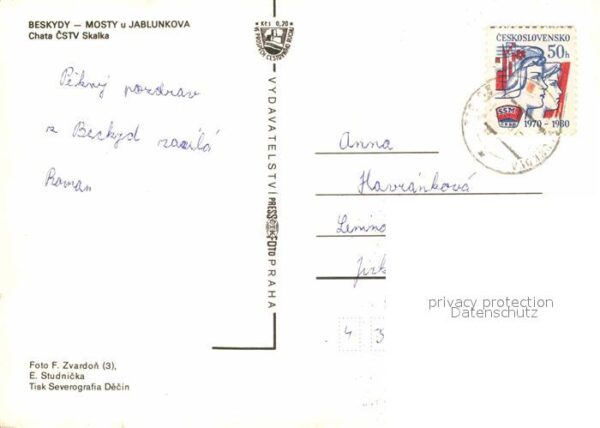 BESKYDY — MOSTY u JABLUNKOVA
Chata ČSTV Skalka
Pěkný pozdrav
z Beskyd zasílá
Roman
Kčs 0,20
VYDAVATELSTVÍ PRESSFOTO PRAHA
ČESKOSLOVENSKO
50h
SSM
1970 - 1980
Anna
Havránková
Jirk
4 3
privacy protection
Datenschutz
Foto F. Zvardoň (3),
E. Studnička
Tisk Severografia Děčín